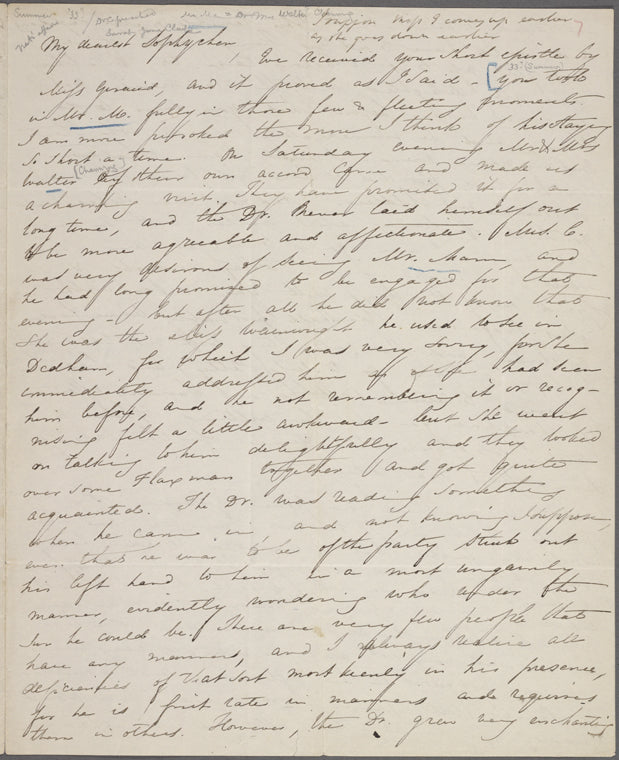 Summer '33 / Mr. Ma = Dr & Mrs Walter Channing
My dearest Sophychen, I've received your short epistle by
Miss Gerrard, and it proved as I said - [You took
33 (Summer)
in Mr. M. fully in those few & fleeting moments.
I am more provoked the more I think of his staying
so short a time. On Saturday evening Mr & Mrs
(Channing)
Walter by their own accord came and made us
a charming visit. They have promised it for a
long time, and the Dr. laid himself out
to be more agreeable and affectionate. Mrs. C.
was very desirous of seeing Mr. Mann, and
he had long promised to be engaged for that
evening - but after all he did not know that
she was the Miss Wainwright he used to see in
Dedham, for which I was very sorry, for she
immediately addressed him as if she had seen
him before, and he not remembering it or recog-
nising felt a little awkward - but she went
on talking to him delightfully and they looked
over some Flaxman together and got quite
acquainted. The Dr. was reading something
when he came in, and not knowing I suppose,
even that he was to be of the party stuck out
his left hand to him in a most ungainly
manner, evidently wondering who under the
sun he could be. There are very few people that
have any manners, and I always realise all
deficiencies of that sort most keenly in his presence,
for he is first rate in manners and requires
them in others. However, the Dr. grew very enchanting